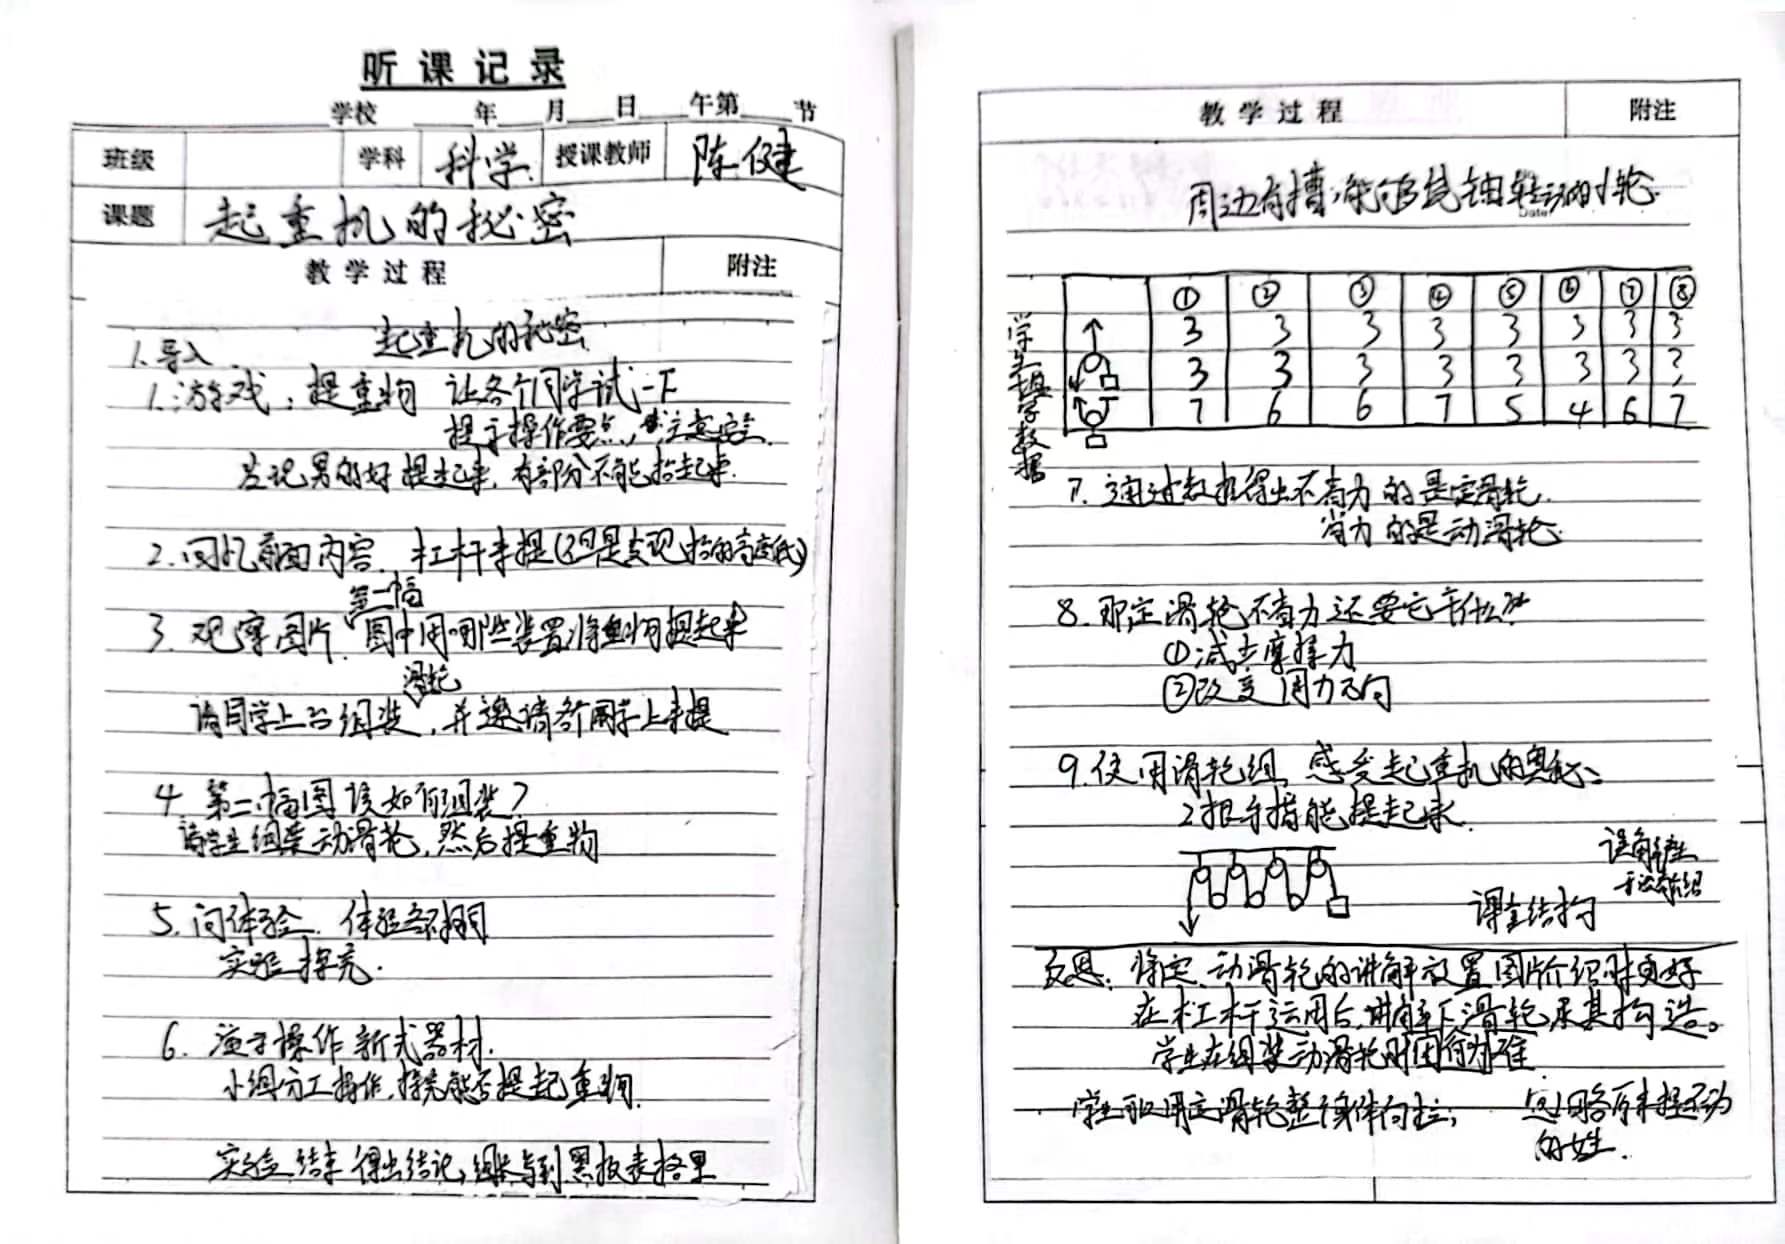 听课记录
学校 年 月 日 午第 节
班级 学科 科学 授课教师 陈健
课题 起重机的秘密
教学过程 附注
起重机的秘密
1.导入
1.游戏：提重物 让各个同学试一下
提示操作要点，注意安全.
发现男的好提起来，有部分不能抬起来.
2.回忆前面内容. 杠杆来提(但是发现抬的高度低)
第一幅
3.观察图片. 图中用哪些装置将重物提起来
滑轮
请同学上台组装，并邀请各同学上来提
4.第二幅图该如何组装？
请学生组装动滑轮，然后提重物
5.问体验. 体验各不相同
实验探究.
6.演示操作新式器材.
小组分工操作，探究能否提起重物.
实验结束 得出结论，组长写到黑板表格里
教学过程 附注
周边有槽，能够绕轴转动的小轮.
Date
① ② ③ ④ ⑤ ⑥ ⑦ ⑧
3 3 3 3 3 3 3 3
3 3 3 3 3 3 3 3
7 6 6 7 5 4 6 7
学生填写数据
7.通过数据得出不省力的是定滑轮.
省力的是动滑轮.
8.那定滑轮不省力还要它干什么？
①减去摩擦力
②改变用力方向
9.使用滑轮组，感受起重机的奥秘.
2根手指能提起来.
课堂结构
反思：将定、动滑轮的讲解放置图片介绍时更好
在杠杆运用后，讲解下滑轮及其构造。
学生在组装动滑轮时困行为难
学生取用定滑轮整个身体向拉；
原来提不动
的姓.